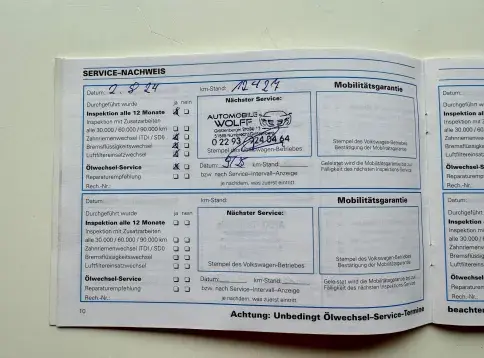 SERVICE-NACHWEIS
Datum: 2. 8 24 km-Stand:
Durchgeführt wurde ja nein
Inspektion alle 12 Monate
Inspektion mit Zusatzarbeiten
alle 30.000 / 60.000 / 90.000 km
Zahnriemenwechsel (TDI / SDI)
Bremsflüssigkeitswechsel
Luftfiltereinsatzwechsel
Ölwechsel-Service
Reparaturempfehlung
Rech.-Nr.:
Nächster Service:
AUTOMOBILE
WOLFF
0 22 93
Stempel des Volkswagen-Betriebes
Datum: km-Stand:
bzw. nach Service-Intervall-Anzeige
je nachdem, was zuerst eintritt
Mobilitätsgarantie
Stempel des Volkswagen-Betriebes
Bestätigung der Mobilitätsgarantie
Geleistet wird die Mobilitätsgarantie bis zur
Fälligkeit des nächsten Inspektions-Service
Datum: km-Stand:
Durchgeführt wurde ja nein
Inspektion alle 12 Monate
Inspektion mit Zusatzarbeiten
alle 30.000 / 60.000 / 90.000 km
Zahnriemenwechsel (TDI / SDI)
Bremsflüssigkeitswechsel
Luftfiltereinsatzwechsel
Ölwechsel-Service
Reparaturempfehlung
Rech.-Nr.:
Nächster Service:
Stempel des Volkswagen-Betriebes
Datum: km-Stand:
bzw. nach Service-Intervall-Anzeige
je nachdem, was zuerst eintritt
Mobilitätsgarantie
Stempel des Volkswagen-Betriebes
Bestätigung der Mobilitätsgarantie
Geleistet wird die Mobilitätsgarantie bis zur
Fälligkeit des nächsten Inspektions-Service
10
Achtung: Unbedingt Ölwechsel-Service-Termine
Datum:
Durchgeführt
Inspektion
Inspektion
alle 30.000
Zahnriemen
Bremsflüssig
Luftfilterein
Ölwechsel
Reparaturem
Rech.-Nr.:
beachten